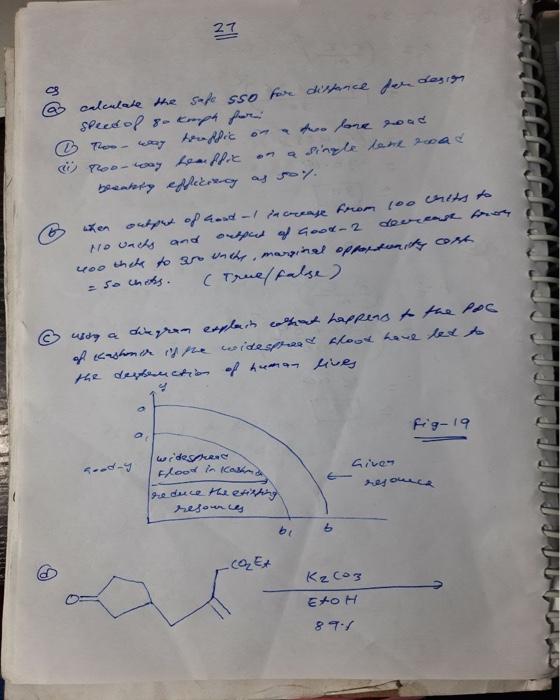 27
Q
(a) calculate the safe SSD for distance for design
speed of 80 kmph for:
(i) Two-way traffic on a two lane road
(ii) Two-way traffic on a single lane road
breaking efficiency as 50%.
(b) when output of Good-1 increase from 100 units to
110 units and output of Good-2 decrease from
400 units to 350 units, marginal opportunity cost
= 50 units. (True/False)
(c) using a diagram explain what happens to the PPC
of Kashmir if the widespread flood have led to
the destruction of human lives
y
a
a1
Good-y
widespread
flood in Kashmir
reduce the existing
resources
b1 b
Given
resource
Fig-19
(d)
O
CO2Et
K2CO3
EtOH
89%